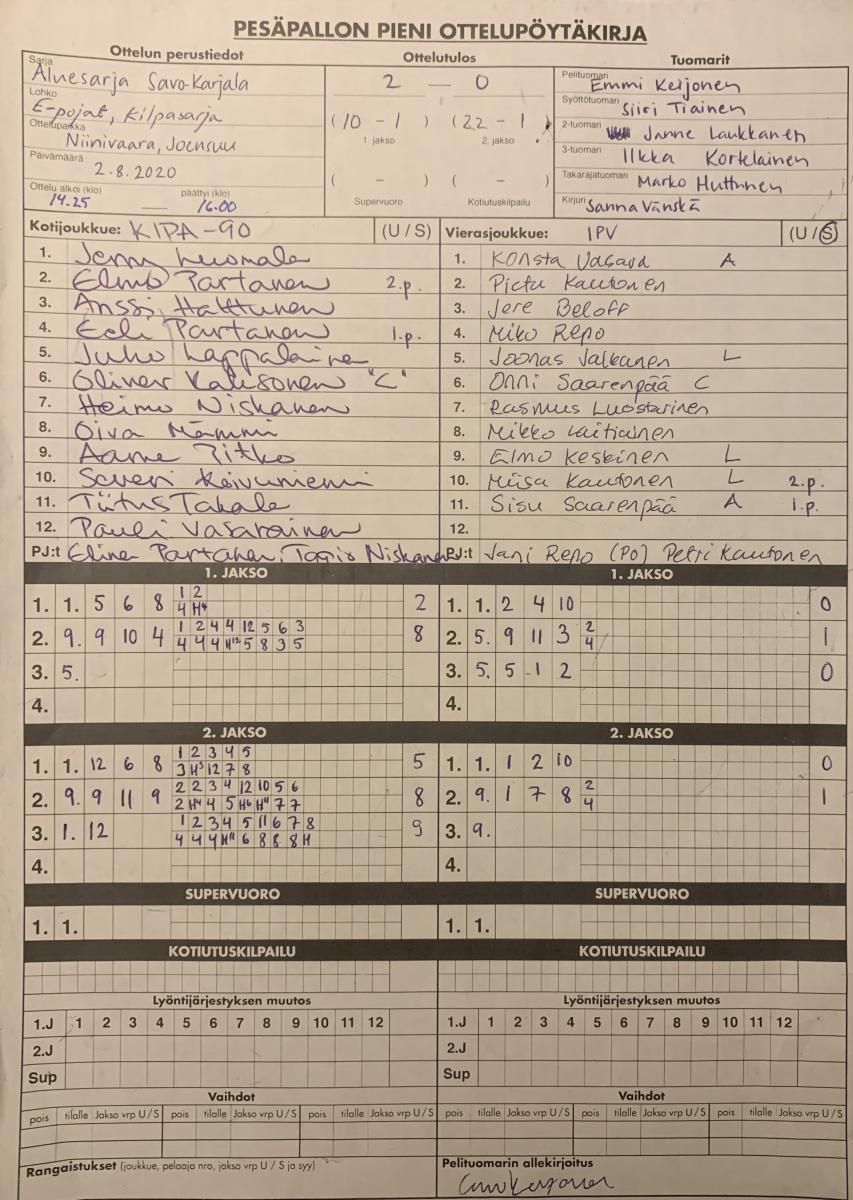 PESÄPALLON PIENI OTTELUPÖYTÄKIRJA
Ottelun perustiedot
Sarja Aluesarja Savo-Karjala
Lohko E-pojat, Kilpasarja
Ottelupaikka Niinivaara, Joensuu
Päivämäärä 2.8.2020
Ottelu alkoi (klo) päättyi (klo)
14.25 — 16.00
Ottelutulos
2 — 0
(10 - 1) (22 - 1)
1. jakso 2. jakso
( - ) ( - )
Supervuoro Kotiutuskilpailu
Tuomarit
Pelituomari Emmi Keijonen
Syöttötuomari Siiri Tiainen
2-tuomari Janne Laukkanen
3-tuomari Ilkka Kortelainen
Takarajatuomari Marko Huttunen
Kirjuri Sanna Vänskä
Kotijoukkue: KIPA-90 (U / S)
1. Jenny Luomala
2. Elmo Partanen 2.p.
3. Anssi Halttunen
4. Eeli Partanen 1.p.
5. Juho Lappalainen
6. Oliver Kalisonen "C"
7. Heimo Niskanen
8. Oiva Mämmi
9. Aarne Pitko
10. Saveri Koivuniemi
11. Tiitus Takala
12. Pauli Vasarainen
PJ:t Elina Partanen, Niskanen
Vierasjoukkue: IPV (U / S)
1. Konsta Vasara A
2. Pietu Kautonen
3. Jere Beloff
4. Miko Repo
5. Joonas Jalkanen L
6. Onni Saarenpää C
7. Rasmus Luostarinen
8. Mikko Laitiainen
9. Elmo Keskinen L
10. Miisa Kautonen L 2.p.
11. Sisu Saarenpää A 1.p.
12.
PJ:t Jani Repo (PO) Petri Kautonen
1. JAKSO
1 2
1. 1. 5 6 8 4 H4 2
1 2 4 4 12 5 6 3
2. 9. 9 10 4 4 4 4 H12 5 8 3 5 8
3. 5.
4.
1. JAKSO
1. 1. 2 4 10 0
2
2. 5. 9 11 3 4 1
3. 5. 5 1 2 0
4.
2. JAKSO
1 2 3 4 5
1. 1. 12 6 8 3 H3 12 7 8 5
2 2 3 4 12 10 5 6
2. 9. 9 11 9 2 H4 4 5 H6 H11 7 7 8
1 2 3 4 5 11 6 7 8
3. 1. 12 4 4 4 H11 6 8 8 8 H 9
4.
2. JAKSO
1. 1. 1 2 10 0
2
2. 9. 1 7 8 4 1
3. 9.
4.
SUPERVUORO
1. 1.
SUPERVUORO
1. 1.
KOTIUTUSKILPAILU
KOTIUTUSKILPAILU
Lyöntijärjestyksen muutos
1.J 1 2 3 4 5 6 7 8 9 10 11 12
2.J
Sup
Lyöntijärjestyksen muutos
1.J 1 2 3 4 5 6 7 8 9 10 11 12
2.J
Sup
Vaihdot
pois tilalle Jakso vrp U / S pois tilalle Jakso vrp U / S pois tilalle Jakso vrp U / S
Vaihdot
pois tilalle Jakso vrp U / S pois tilalle Jakso vrp U / S pois tilalle Jakso vrp U / S
Rangaistukset (joukkue, pelaaja nro, jakso vrp U / S ja syy)
Pelituomarin allekirjoitus